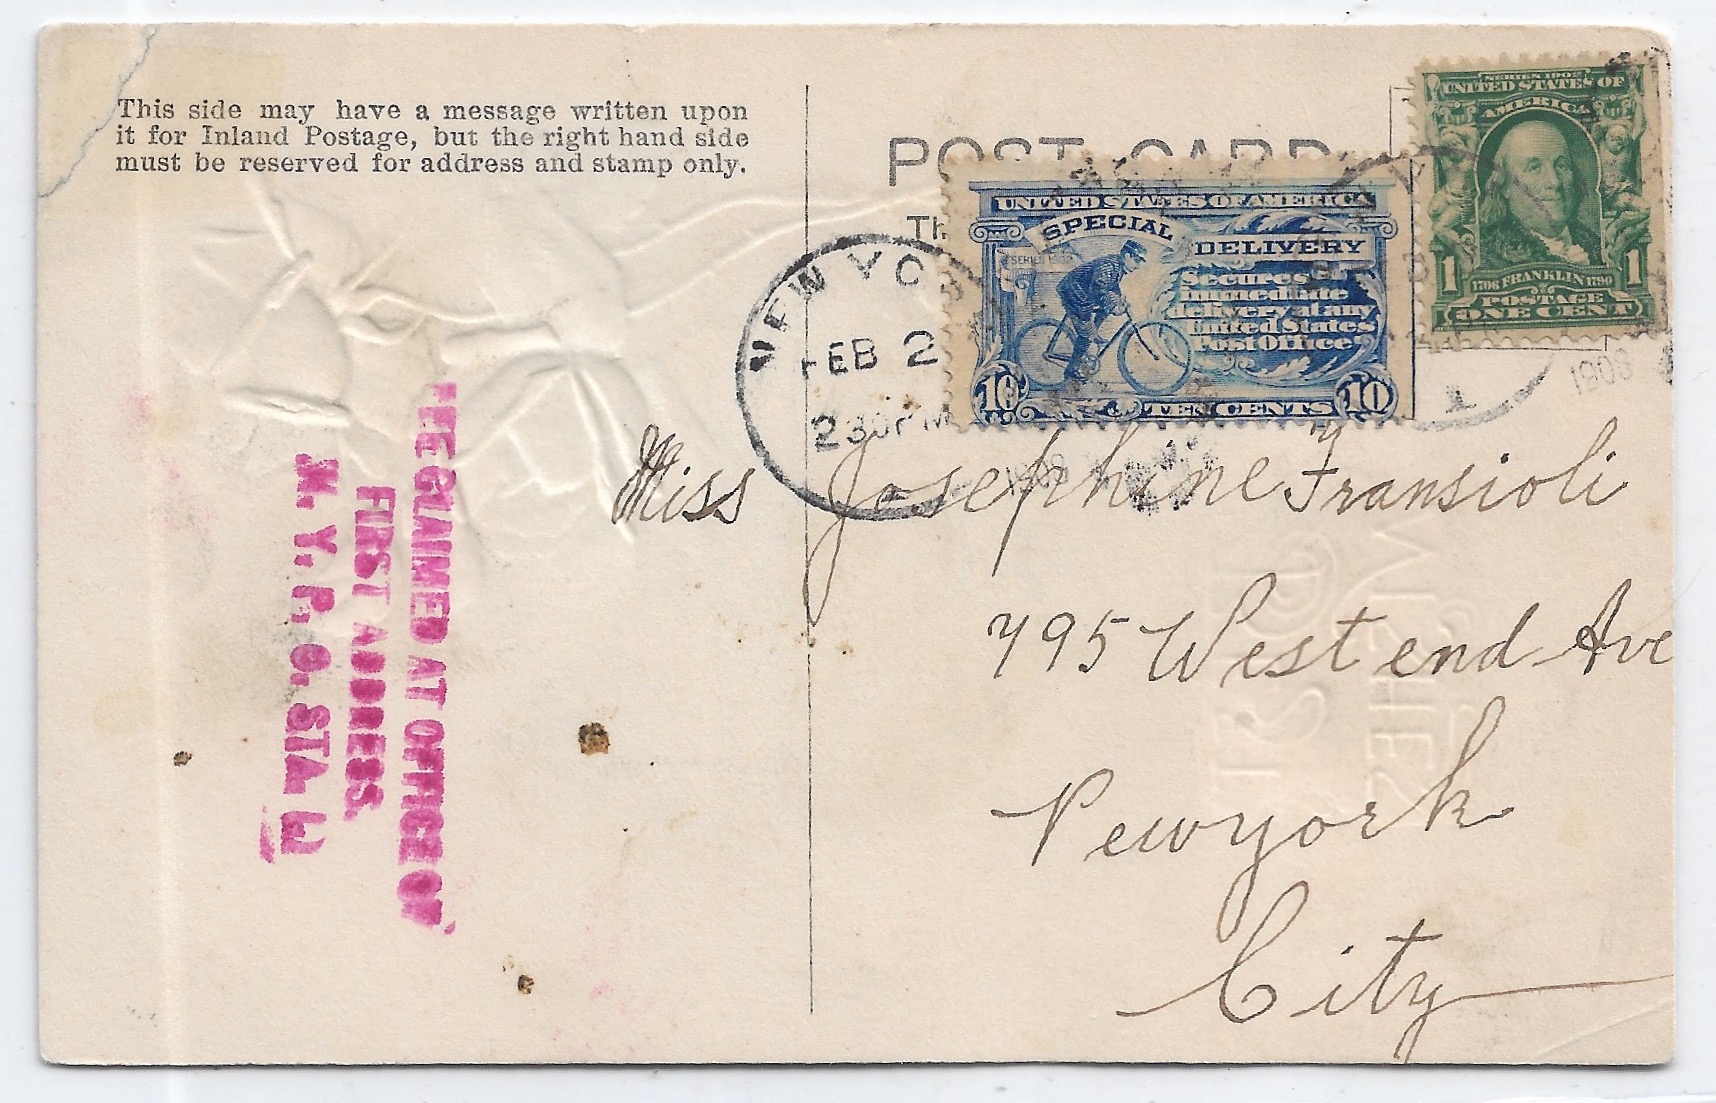 This side may have a message written upon
it for Inland Postage, but the right hand side
must be reserved for address and stamp only.
POST CARD
Th
SERIES 1902
UNITED STATES OF
AMERICA
1 1706 FRANKLIN 1790 1
POSTAGE
ONE CENT
UNITED STATES OF AMERICA
SPECIAL DELIVERY
SERIES 1902
Secures
immediate
delivery at any
United States
Post Office
10 TEN CENTS 10
NEW YOR
FEB 2
2 30 PM
1908
1908
Miss Josephine Fransioli
795 West end Ave
Newyork
City
FEE CLAIMED AT OFFICE OF
FIRST ADDRESS.
N. Y. P. O. STA.